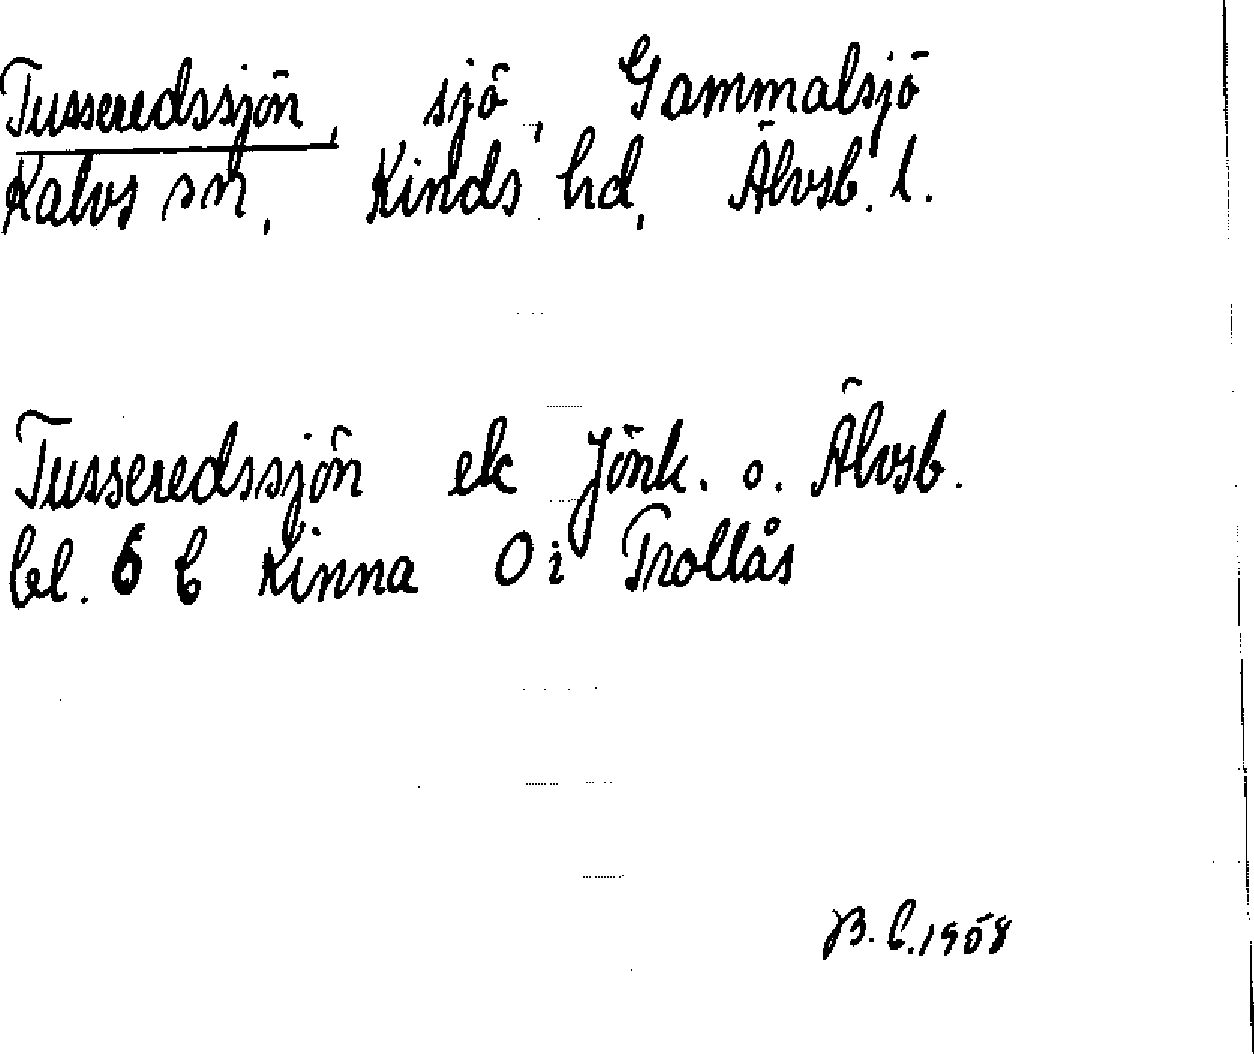 Tusseredssjön, sjö, Gammalsjö
Kalvs sn, Kinds hd, Älvsb. l.
Tusseredssjön ek Jönk. o. Älvsb.
bl. 6 C Kinna O i Trollås
B. C. 1958